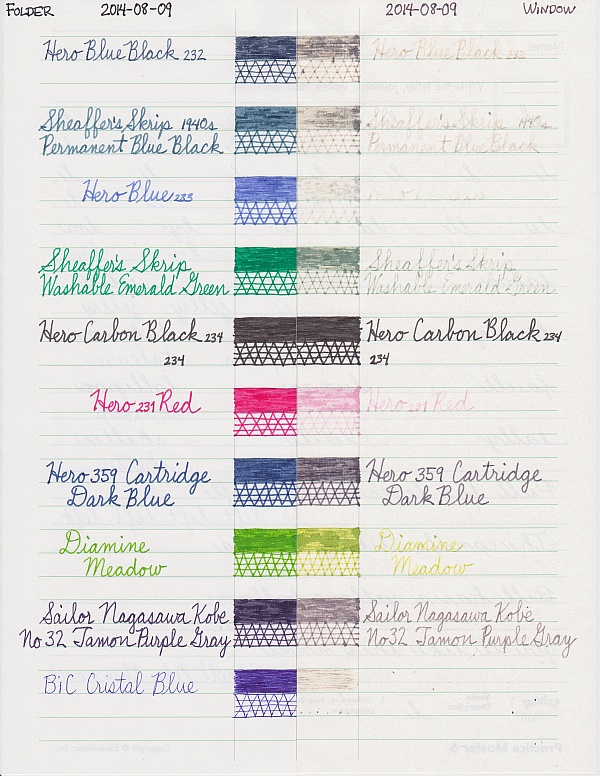 FOLDER 2014-08-09 2014-08-09 WINDOW
Hero Blue Black 232 Hero Blue Black 232
Sheaffer's Skrip 1940s Sheaffer's Skrip 1940s
Permanent Blue Black Permanent Blue Black
Hero Blue 233
Sheaffer's Skrip Sheaffer's Skrip
Washable Emerald Green Washable Emerald Green
Hero Carbon Black 234 Hero Carbon Black 234
234 234
Hero 231 Red Hero 231 Red
Hero 359 Cartridge Hero 359 Cartridge
Dark Blue Dark Blue
Diamine Diamine
Meadow Meadow
Sailor Nagasawa Kobe Sailor Nagasawa Kobe
No 32 Tamon Purple Gray No 32 Tamon Purple Gray
BiC Cristal Blue